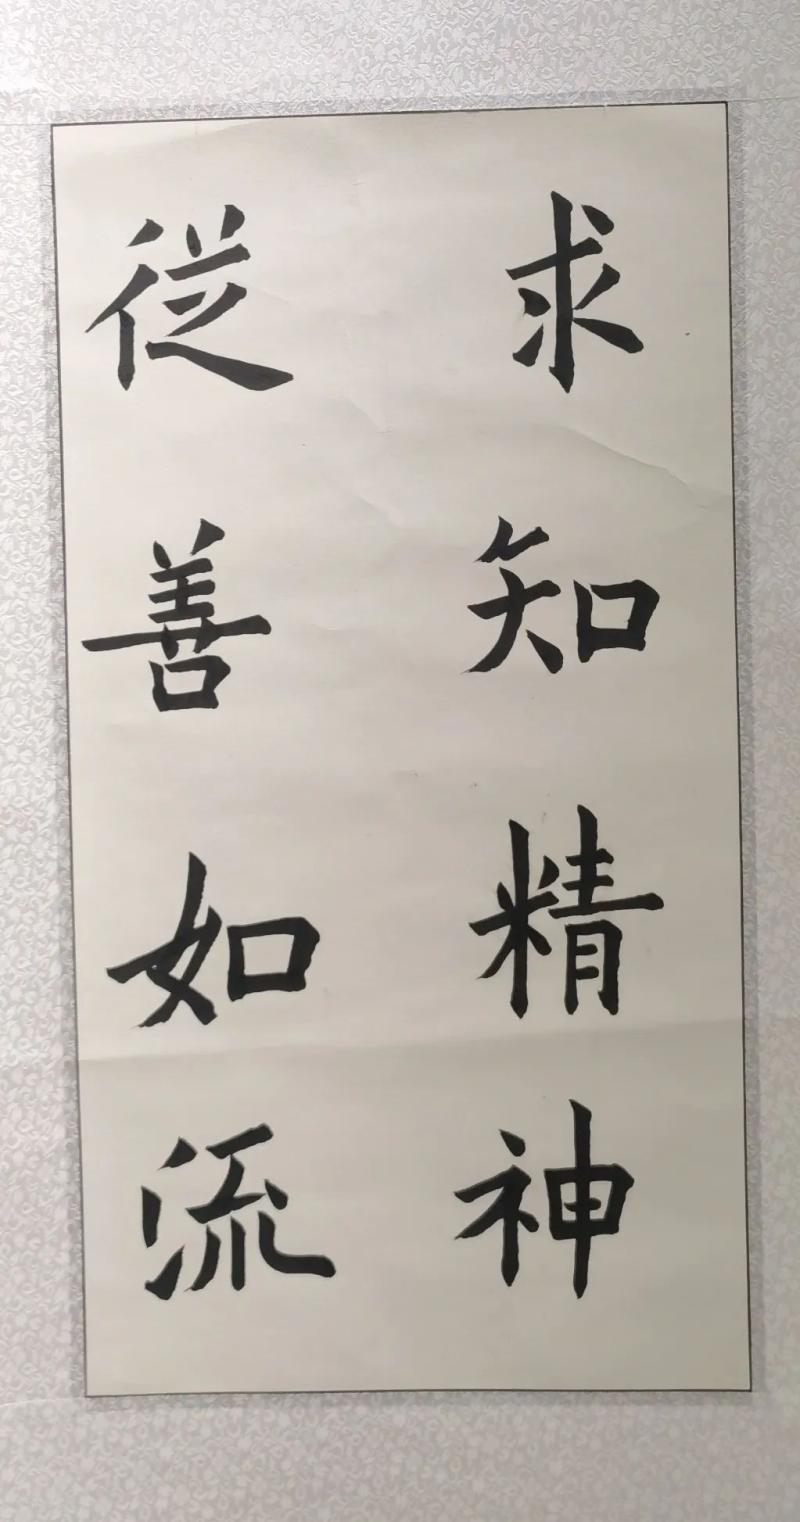 求知精神
従善如流